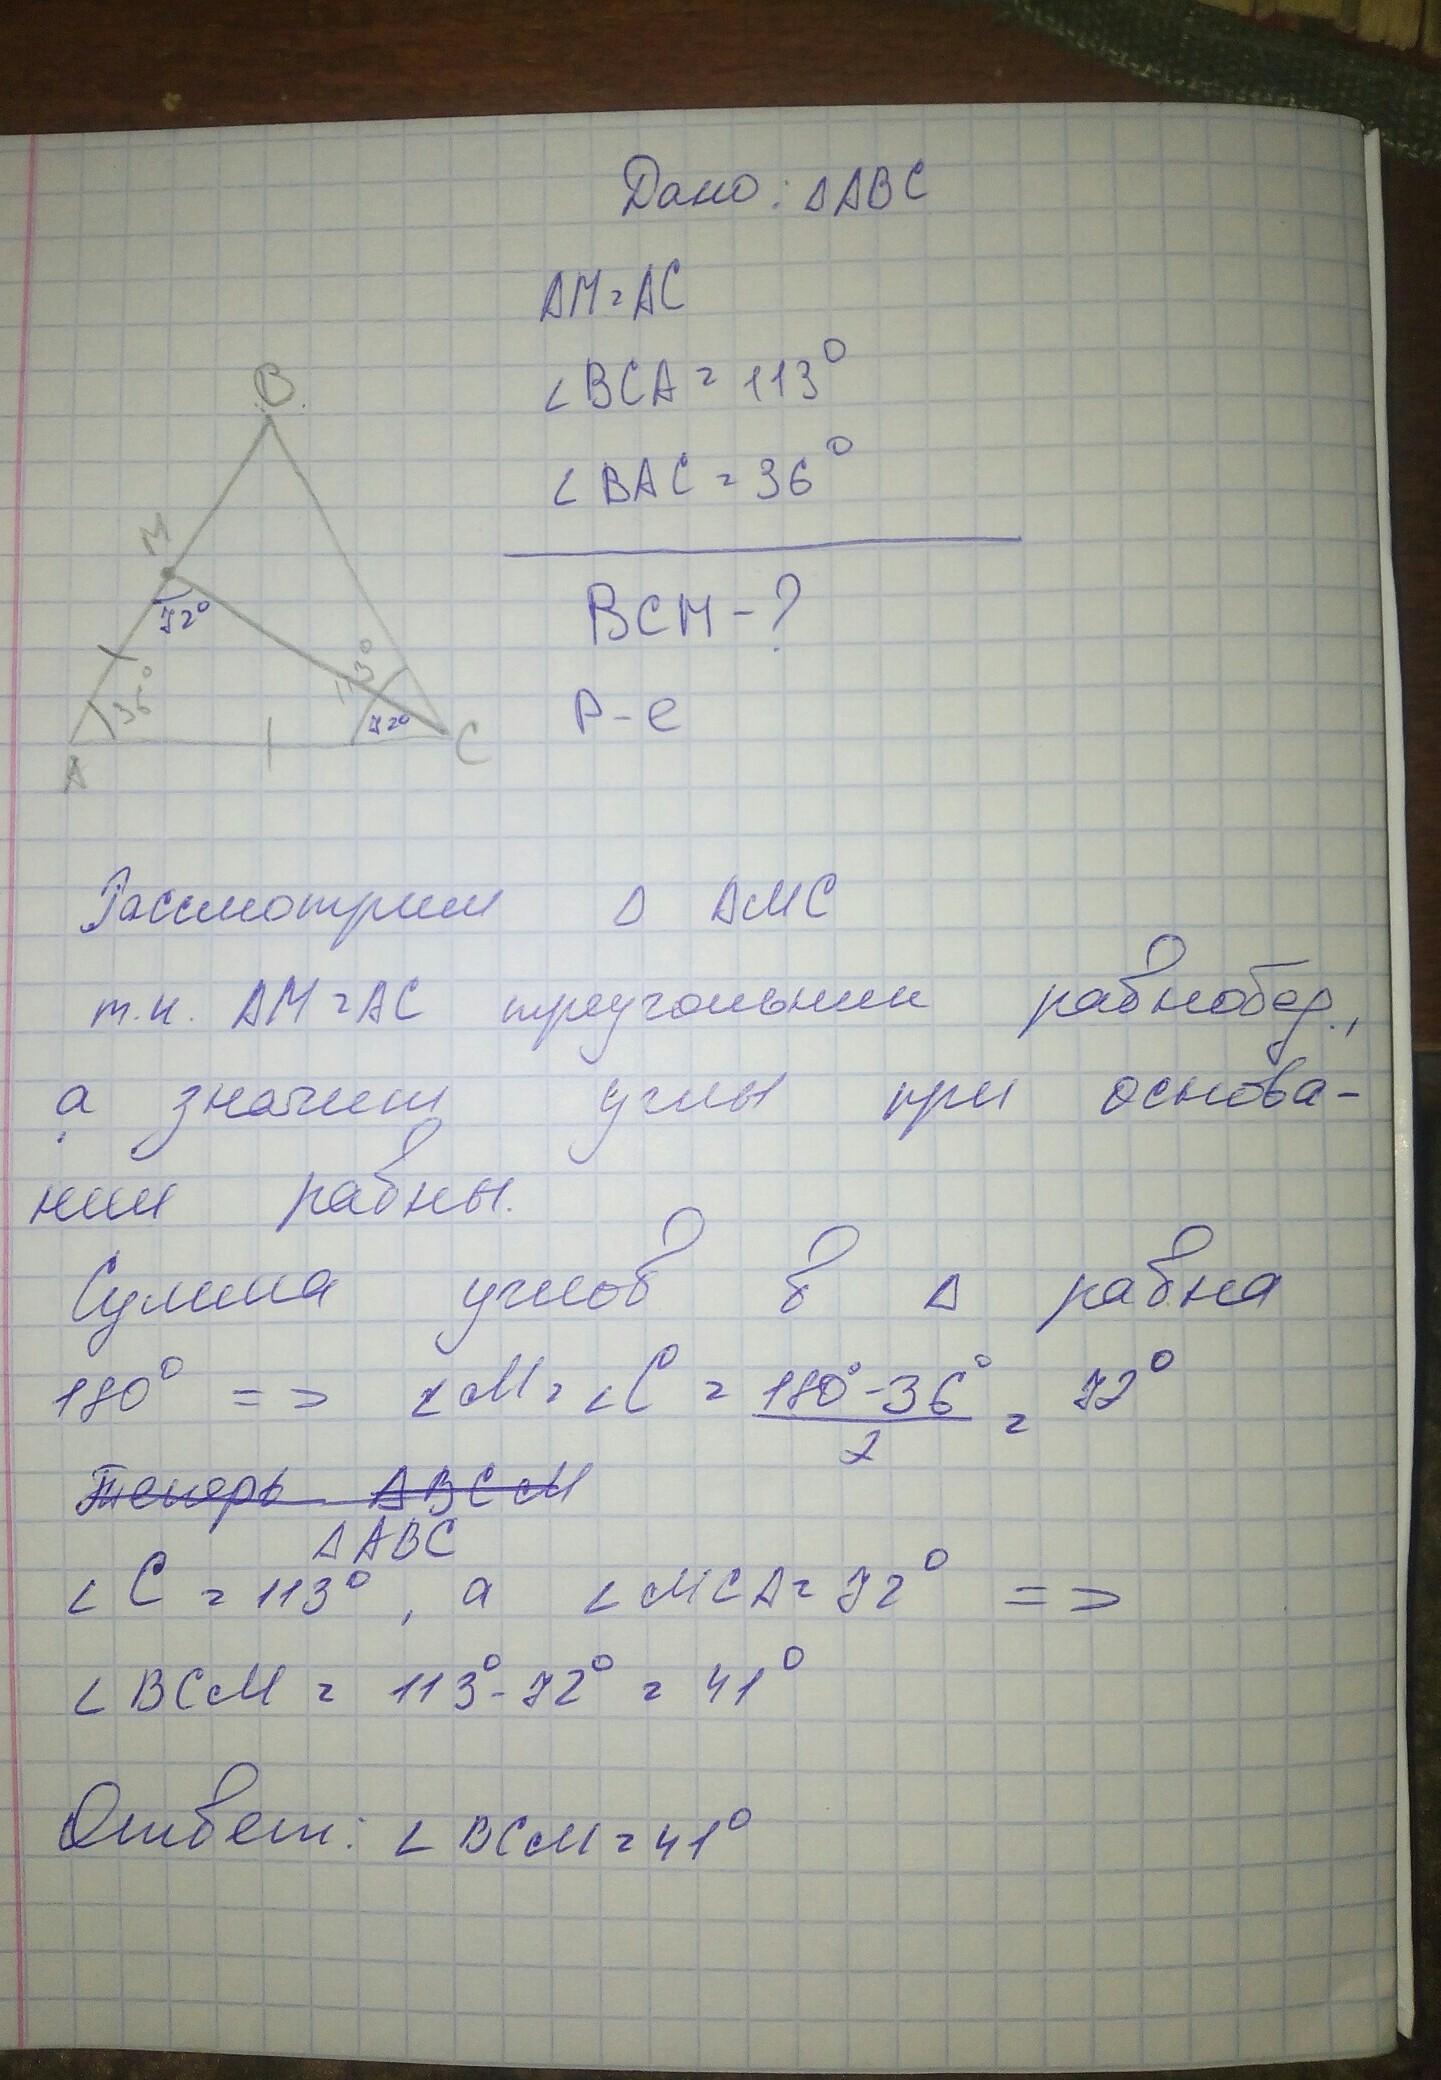 Дано: ΔABC
AM=AC
∠BCA = 113°
∠BAC = 36°
BCM - ?
Р-е
B
M
72°
36°
113°
72°
A
C
Рассмотрим Δ AMC
т.к. AM=AC треугольник равнобер.,
а значит углы при основа-
нии равны.
Сумма углов в Δ равна
180° => ∠M=∠C = (180°-36°)/2 = 72°
Теперь ΔBCM
ΔABC
∠C = 113°, а ∠MCA=72° =>
∠BCM = 113°-72° = 41°
Ответ: ∠BCM=41°